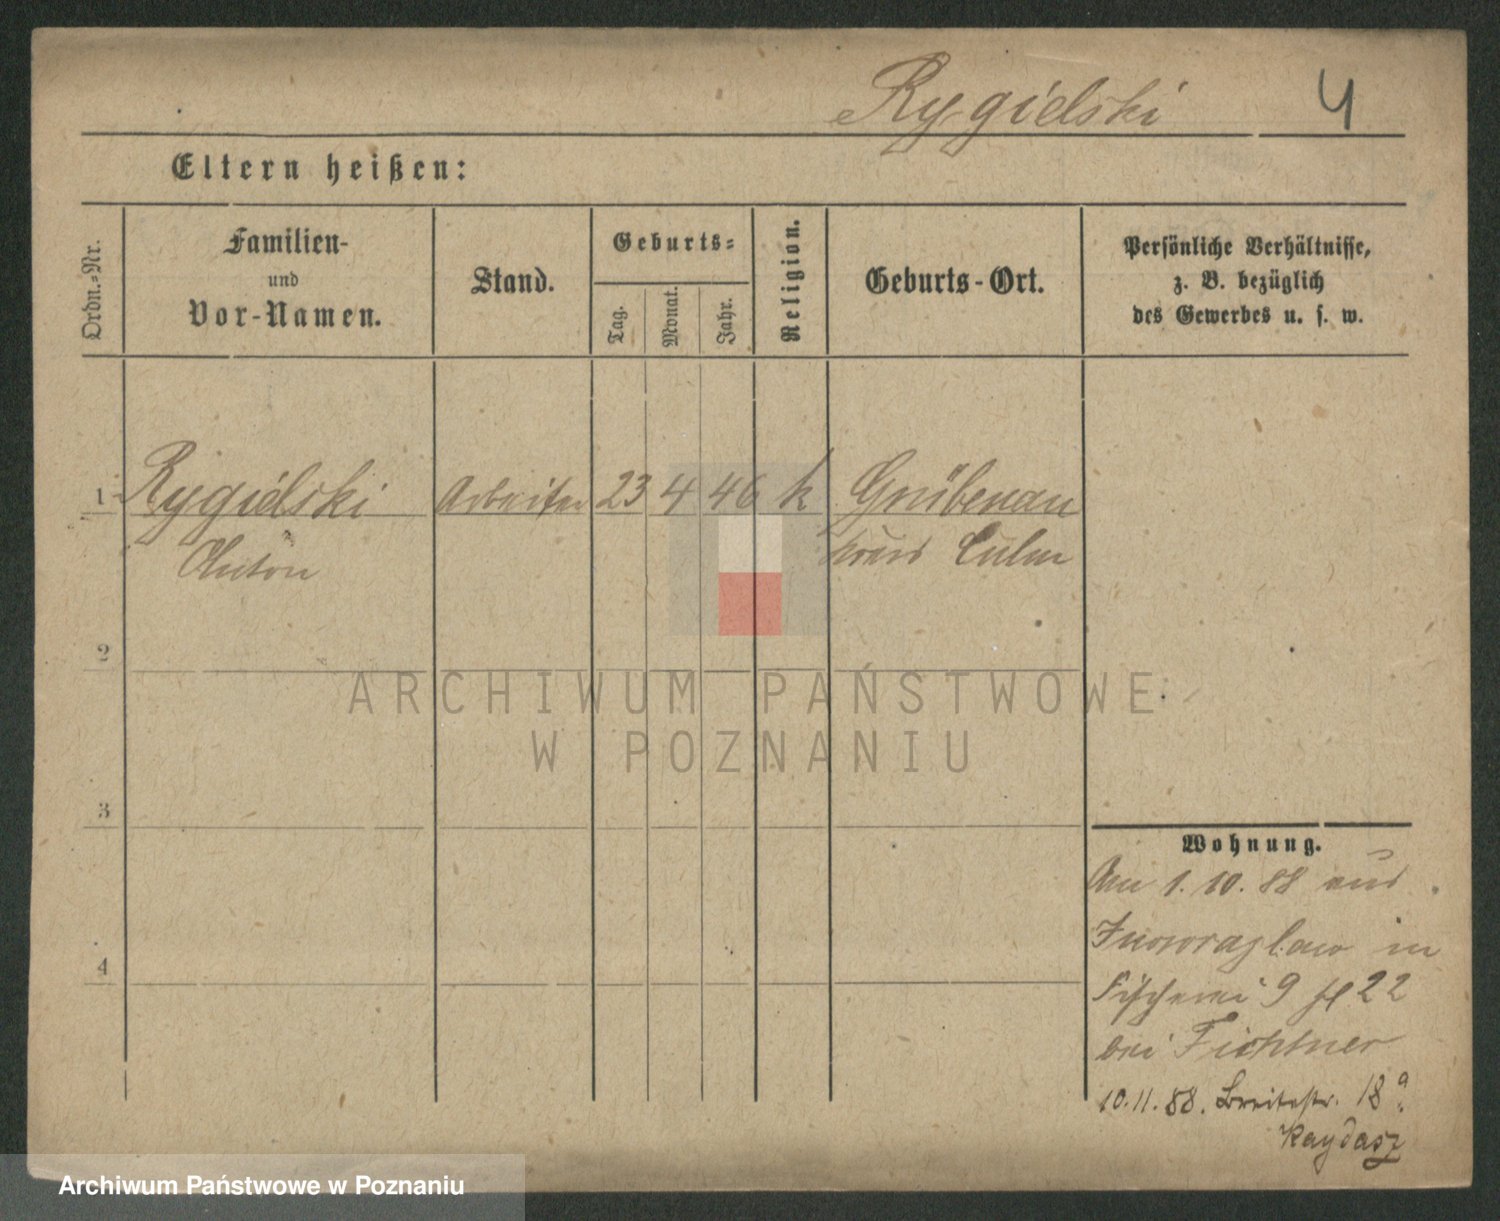 Rygielski 4
Eltern heißen:
Ordn.-Nr.
Familien-
und
Vor-Namen.
Stand.
Geburts-
Tag.
Monat.
Jahr.
Religion.
Geburts-Ort.
Persönliche Verhältnisse,
z. B. bezüglich
des Gewerbes u. s. w.
1 Rygielski Arbeiter 23 4 46 k Grubenau
Anton Kreis Culm
2
ARCHIWUM PAŃSTWOWE
W POZNANIU
3
Wohnung.
Am 1. 10. 88 aus
Inowrazlaw in
4
Fischerei 9 22
bei Fichtner
10.11.88. Breitestr. 18a
Kaydasz
Archiwum Państwowe w Poznaniu